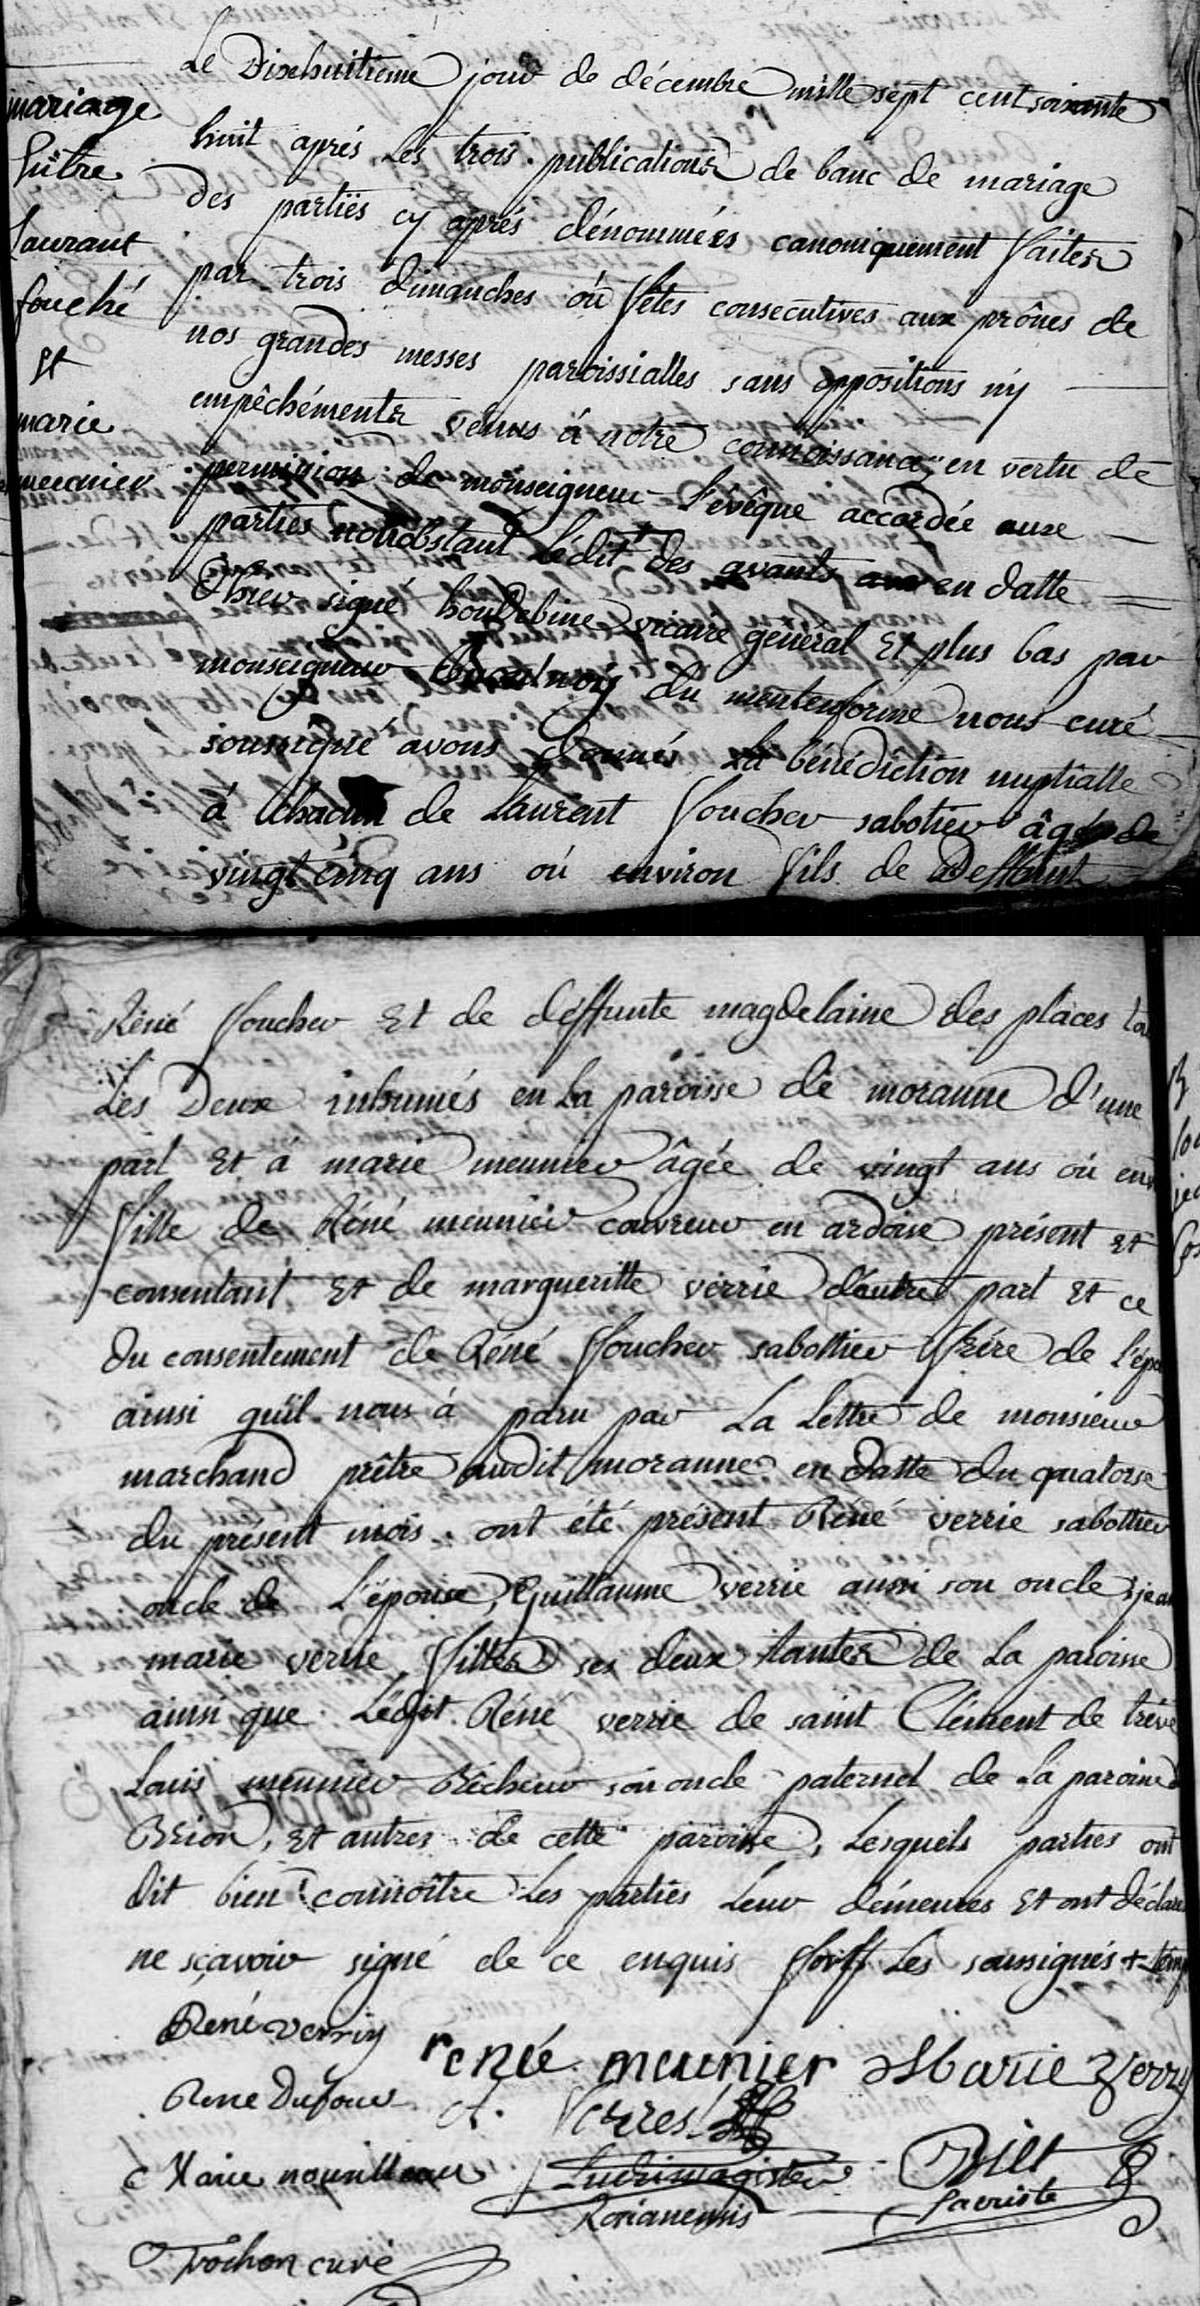 mariage
Entre
Laurant
fouché
Et
marie
meunier
Le Dixhuitieme jour de décembre mille sept cent soixante
huit aprés Les trois publications de banc de mariage
des partiës cy aprés dénommées canoniquement faites
par trois dimanches oú fêtes consecutives aux prônes de
nos grandes messes paroissialles sans oppositions ny
empêchéments venus á notre connoissance, en vertu de
permission de monseigneur L'évêque accordée aux
parties nonobstant L'édit des avants en datte
signé houdebine vicaire général Et plus bas par
monseigneur du mentenforme nous curé
soussigné avons donnés La bénédiction nuptialle
á chacun de Laurent foucher sabotier âgé de
vingt cinq ans oú environ fils de Deffunt
Réné foucher Et de deffunte magdelaine des places
Les Deux inhumés en La paroisse de moranne d'une
part Et á marie meunier âgée de vingt ans oú
fille de Réné meunier couvreur en ardoise présent Et
consentant Et de margueritte verrie d'autre part Et ce
du consentement de Réné foucher sabottier frére de
ainsi quïl nous á paru par La Lettre de monsieur
marchand prêtre audit moranne en datte du quatorse
du présent mois. ont été présent Réné verrie sabottier
oncle de L'épouse, Guillaume verrie aussi son oncle,
marie verrie filles ses deux tantes de La paroisse
ainsi que Lédit Réné verrie de saint Clément de
Louis meunier son oncle paternel de La paroisse
Brion, Et autres de cette paroisse, Lesquels parties ont
dit bien connoître Les parties Leur démeures Et ont
ne sçavoir signé de ce enquis forff Les soussignés +
René verrie
rené meunier Marie Verry
Rene Dufour
Marie nourilleau
Ludimagister
sacriste
Trochon curé